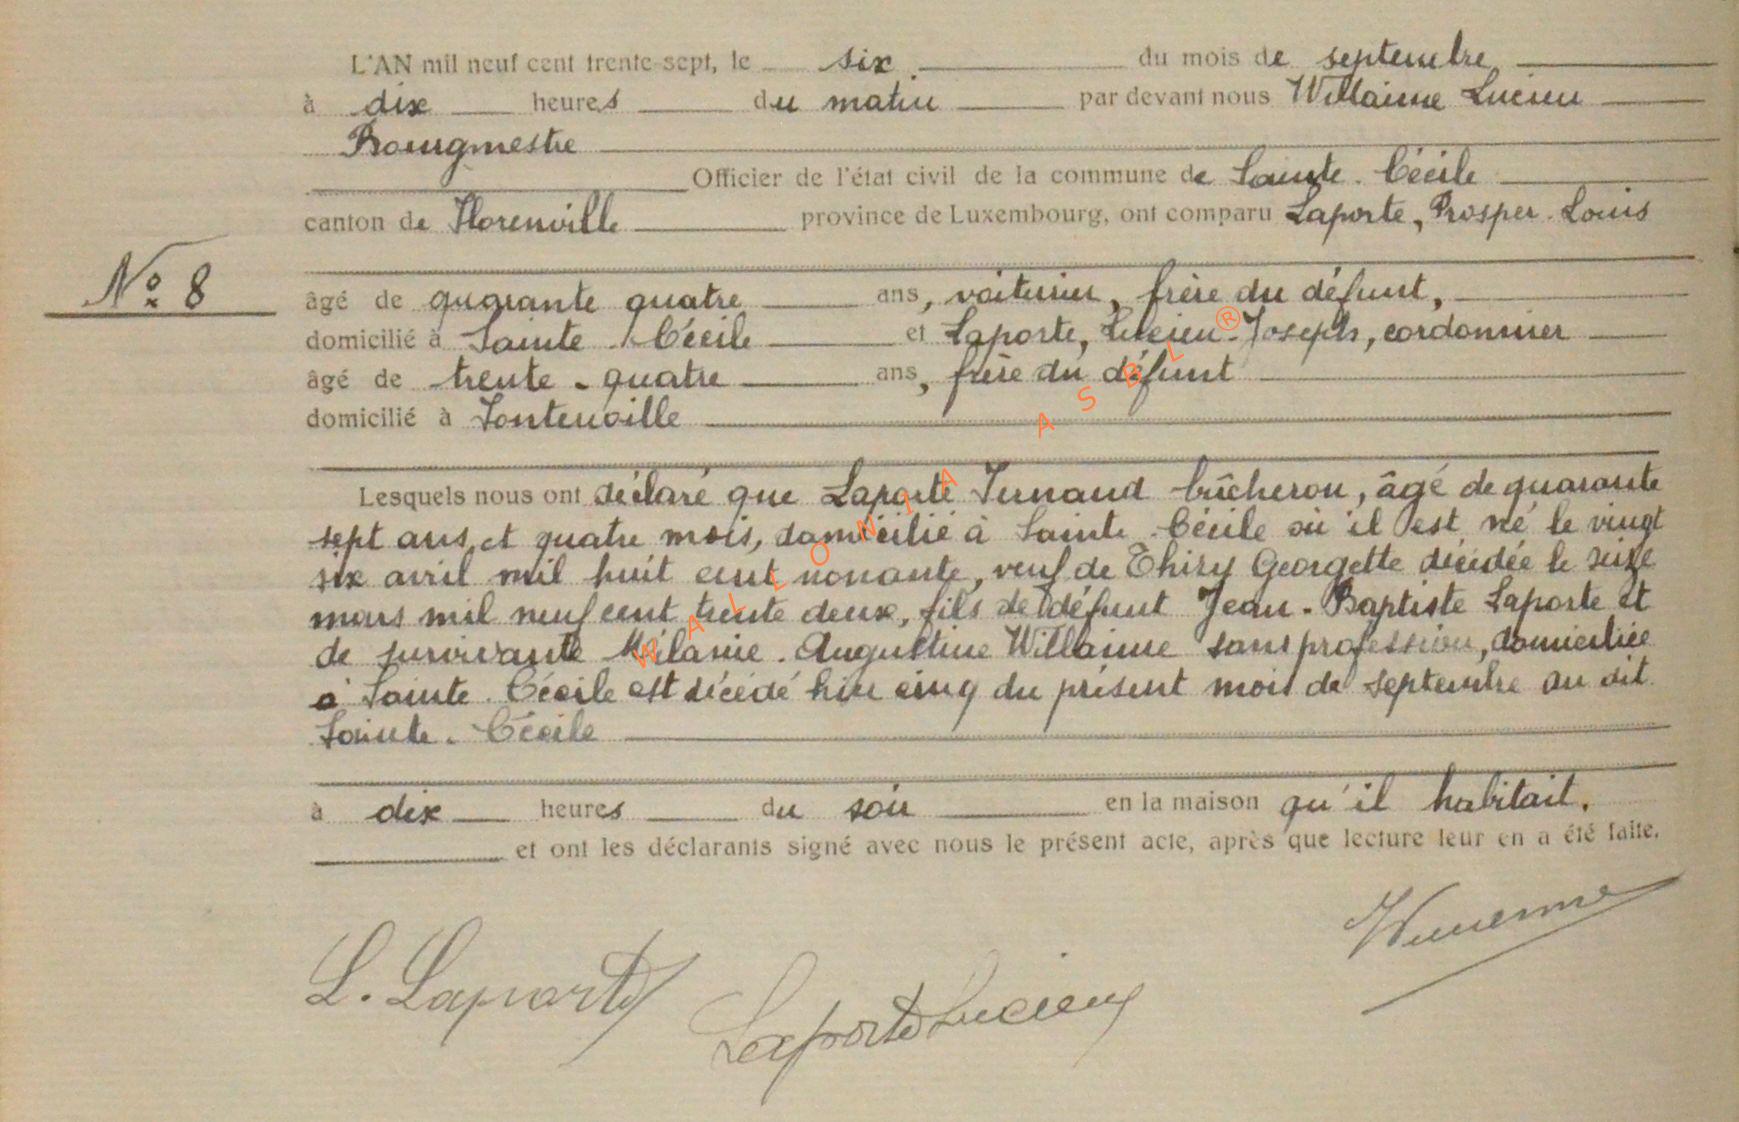 L'AN mil neuf cent trente-sept, le six du mois de septembre
à dix heures du matin par devant nous Willaime Lucien
Bourgmestre
Officier de l'état civil de la commune de Sainte-Cécile
canton de Florenville province de Luxembourg, ont comparu Laporte, Prosper-Louis
No 8
âgé de quarante quatre ans, voiturier, frère du défunt,
domicilié à Sainte-Cécile et Laporte, Lucien-Joseph, cordonnier
âgé de trente-quatre ans, frère du défunt
domicilié à Fontenoille
Lesquels nous ont déclaré que Laporte Fernand bûcheron, âgé de quarante
sept ans et quatre mois, domicilié à Sainte-Cécile où il est né le vingt
six avril mil huit cent nonante, veuf de Thiry Georgette décédée le seize
mars mil neuf cent trente deux, fils de défunt Jean-Baptiste Laporte et
de survivante Mélanie-Augustine Willaime sans profession, domiciliée
à Sainte-Cécile est décédé hier cinq du présent mois de septembre au dit
Sainte-Cécile
à dix heures du soir en la maison qu'il habitait.
et ont les déclarants signé avec nous le présent acte, après que lecture leur en a été faite.
L. Laporte
Laporte Lucien
WALLONIA ASBL ®